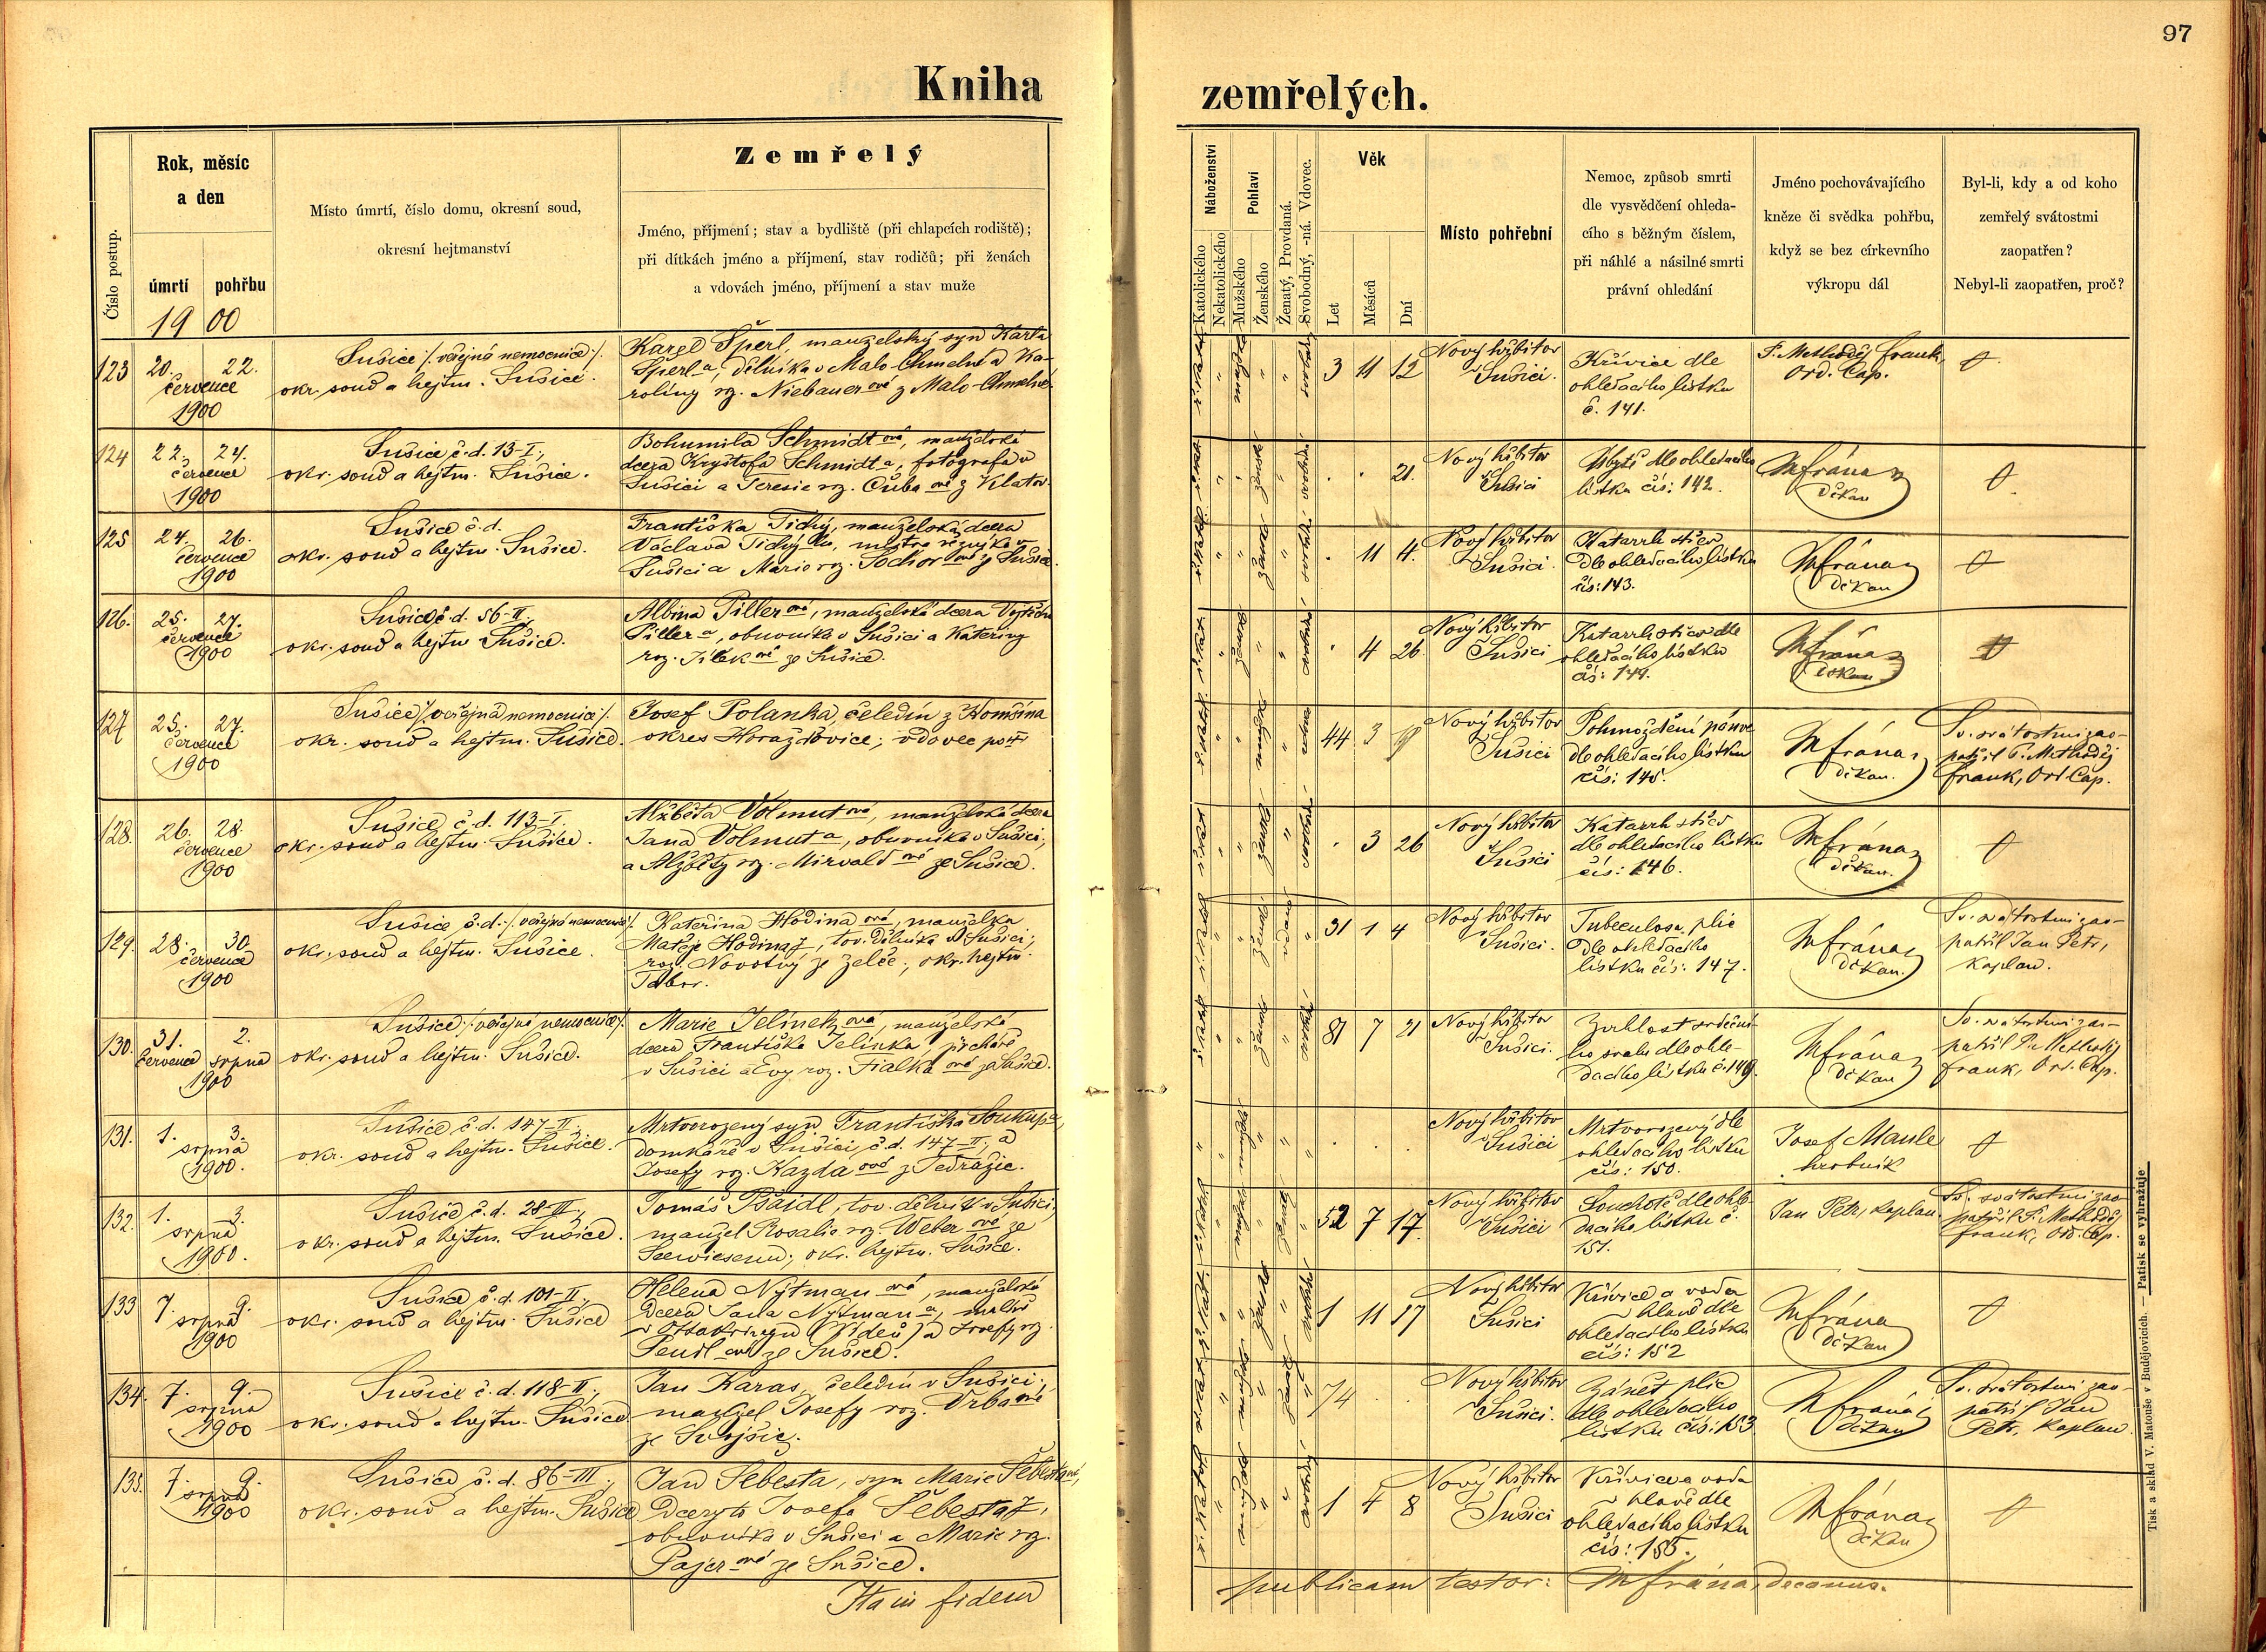 97
Kniha zemřelých.
Číslo postup.
Rok, měsíc
a den
úmrtí pohřbu
1900
Místo úmrtí, číslo domu, okresní soud,
okresní hejtmanství
Zemřelý
Jméno, příjmení; stav a bydliště (při chlapcích rodiště);
při dítkách jméno a příjmení, stav rodičů; při ženách
a vdovách jméno, příjmení a stav muže
Náboženství
Katolického
Nekatolického
Pohlaví
Mužského
Ženského
Ženatý, Provdaná.
Svobodný, -ná. Vdovec.
Věk
Let
Měsíců
Dní
Místo pohřební
Nemoc, způsob smrti
dle vysvědčení ohleda-
cího s běžným číslem,
při náhlé a násilné smrti
právní ohledání
Jméno pochovávajícího
kněze či svědka pohřbu,
když se bez církevního
výkropu dál
Byl-li, kdy a od koho
zemřelý svátostmi
zaopatřen?
Nebyl-li zaopatřen, proč?
123 20. 22.
července
1900
Sušice /: veřejná nemocnice :/
okr. soud a hejtm. Sušice.
Karel Šperl, manželský syn Karla
Šperla, dělníka v Malo-Chmelné a Ka-
roliny roz. Niebauerové z Malo-Chmelné
3 11 12
Nový hřbitov
Sušici.
Křivice dle
ohledacího lístku
č. 141.
P. Methoděj Frank,
Ord. Cap.
124 22. 24.
července
1900
Sušice č.d. 13-I.,
okr. soud a hejtm. Sušice.
Bohumila Schmidtová, manželská
dcera Kryštofa Schmidta, fotografa v
Sušici a Teresie roz. Čubaové z Klatov.
21.
Nový hřbitov
Sušici
Úbytě dle ohledacího
lístku čís: 142.
MFrána
děkan
125 24. 26.
července
1900
Sušice č.d.
okr. soud a hejtm. Sušice.
Františka Tichý, manželská dcera
Václava Tichýho, mistra
Sušici a Marie roz. Tochorové z Sušice.
11 4.
Nový hřbitov
Sušici.
Katarrh střev
dle ohledacího lístku
čís: 143.
MFrána
děkan
126. 25. 27.
července
1900
Sušice č.d. 56-II.,
okr. soud a hejtm Sušice.
Albina Pillerová, manželská dcera Vojtěcha
Pillera, obuvníka v Sušici a Kateřiny
roz. Jílekové ze Sušice.
4 26.
Nový hřbitov
Sušici
Katarrh střev dle
ohledacího lístku
čís: 144.
MFrána
děkan
127 25. 27.
července
1900
Sušice /: veřejná nemocnice :/
okr. soud a hejtm. Sušice.
Josef Polanka, čeledín z
okres Horažďovice; vdovec po
44 3
Nový hřbitov
Sušici
Pohmoždění pánve
dle ohledacího lístku
čís: 145.
MFrána
děkan.
Sv. svátostmi zao-
patřil P. Methoděj
Frank, Ord. Cap.
128. 26. 28.
července
1900
Sušice č.d. 113-I.
okr. soud a hejtm. Sušice.
Alžběta Volmutová, manželská dcera
Jana Volmuta, obuvníka v Sušici,
a Alžběty roz. Mirvaldové ze Sušice.
3 26
Nový hřbitov
Sušici
Katarrh střev
dle ohledacího lístku
čís: 146.
MFrána
děkan.
129. 28. 30.
července
1900
Sušice č.d. /: veřejná nemocnice :/
okr. soud a hejtm. Sušice.
Kateřina Hodinaová, manželka
Matěje Hodinay, tov. dělníka v Sušici;
roz. Novotný ze Želče, okr. hejtm.
Tábor.
31 1 4
Nový hřbitov
Sušici.
Tuberculosa plic
dle ohledacího
lístku čís: 147.
MFrána
děkan.
Sv. svátostmi zao-
patřil Jan Petr,
kaplan.
130. 31. 2.
července srpna
1900
Sušice /: veřejná nemocnice :/
okr. soud a hejtm. Sušice.
Marie Jelineková, manželská
dcera Františka Jelinka, prchaře
v Sušici a Evy roz. Fialkaové ze Sušice.
81 7 21
Nový hřbitov
Sušici.
Zvrhlost srdeční-
ho svalu dle ohle-
dacího lístku č. 149.
MFrána
děkan
Sv. svátostmi zao-
patřil P. Methoděj
Frank, Ord. Cap.
131. 1. 3.
srpna
1900.
Sušice č.d. 147-II.,
okr. soud a hejtm. Sušice.
Mrtvorozený syn Františka Soukupa,
domkáře v Sušici, č.d. 147-II., a
Josefy roz. Kazdaové z Tedražic.
Nový hřbitov
Sušici
Mrtvorozený dle
ohledacího lístku
čís: 150.
Josef Maule
hrobník
132. 1. 3.
srpna
1900.
Sušice č.d. 28-III.,
okr. soud a hejtm. Sušice.
Tomáš Baidl, tov. dělník v Sušici,
manžel Rosalie roz. Weberové ze
Seewiesenu; okr. hejtm. Sušice.
52 7 17.
Nový hřbitov
Sušici
Souchotě dle ohle-
dacího lístku č.
151.
Jan Petr, kaplan.
Sv. svátostmi zao-
patřil P. Methoděj
Frank, Ord. Cap.
133 7. 9.
srpna
1900
Sušice č.d. 101-II.,
okr. soud a hejtm. Sušice
Helena Nýtmanová, manželská
dcera Jana Nýtmana, malíře
v Ottakringu (Vídeň) a Josefy roz.
Pendlové ze Sušice.
1 11 17
Nový hřbitov
Sušici
Křivice a voda
v hlavě dle
ohledacího lístku
čís: 152
MFrána
děkan
134. 7. 9.
srpna
1900
Sušice č.d. 118-II.,
okr. soud a hejtm. Sušice
Jan Karas, čeledín v Sušici,
manžel Josefy roz. Vrbaové
ze Svojšic.
74
Nový hřbitov
Sušici.
Zánět plic
dle ohledacího
lístku čís: 153
MFrána
děkan
Sv. svátostmi zao-
patřil Jan
Petr, kaplan.
135. 7. 9.
srpna
1900
Sušice č.d. 86-III.,
okr. soud a hejtm. Sušice
Jan Šebesta, syn Marie Šebestaové,
dcery to Josefa Šebestay,
obuvníka v Sušici a Marie roz.
Pajerové ze Sušice.
1 4 8
Nový hřbitov
Sušici
Křivice a voda
v hlavě dle
ohledacího lístku
čís: 155.
MFrána
děkan
Ita in fidem publicam testor: MFrána, decanus.
Tisk a sklad V. Matouše v Budějovicích. — Patisk se vyhražuje